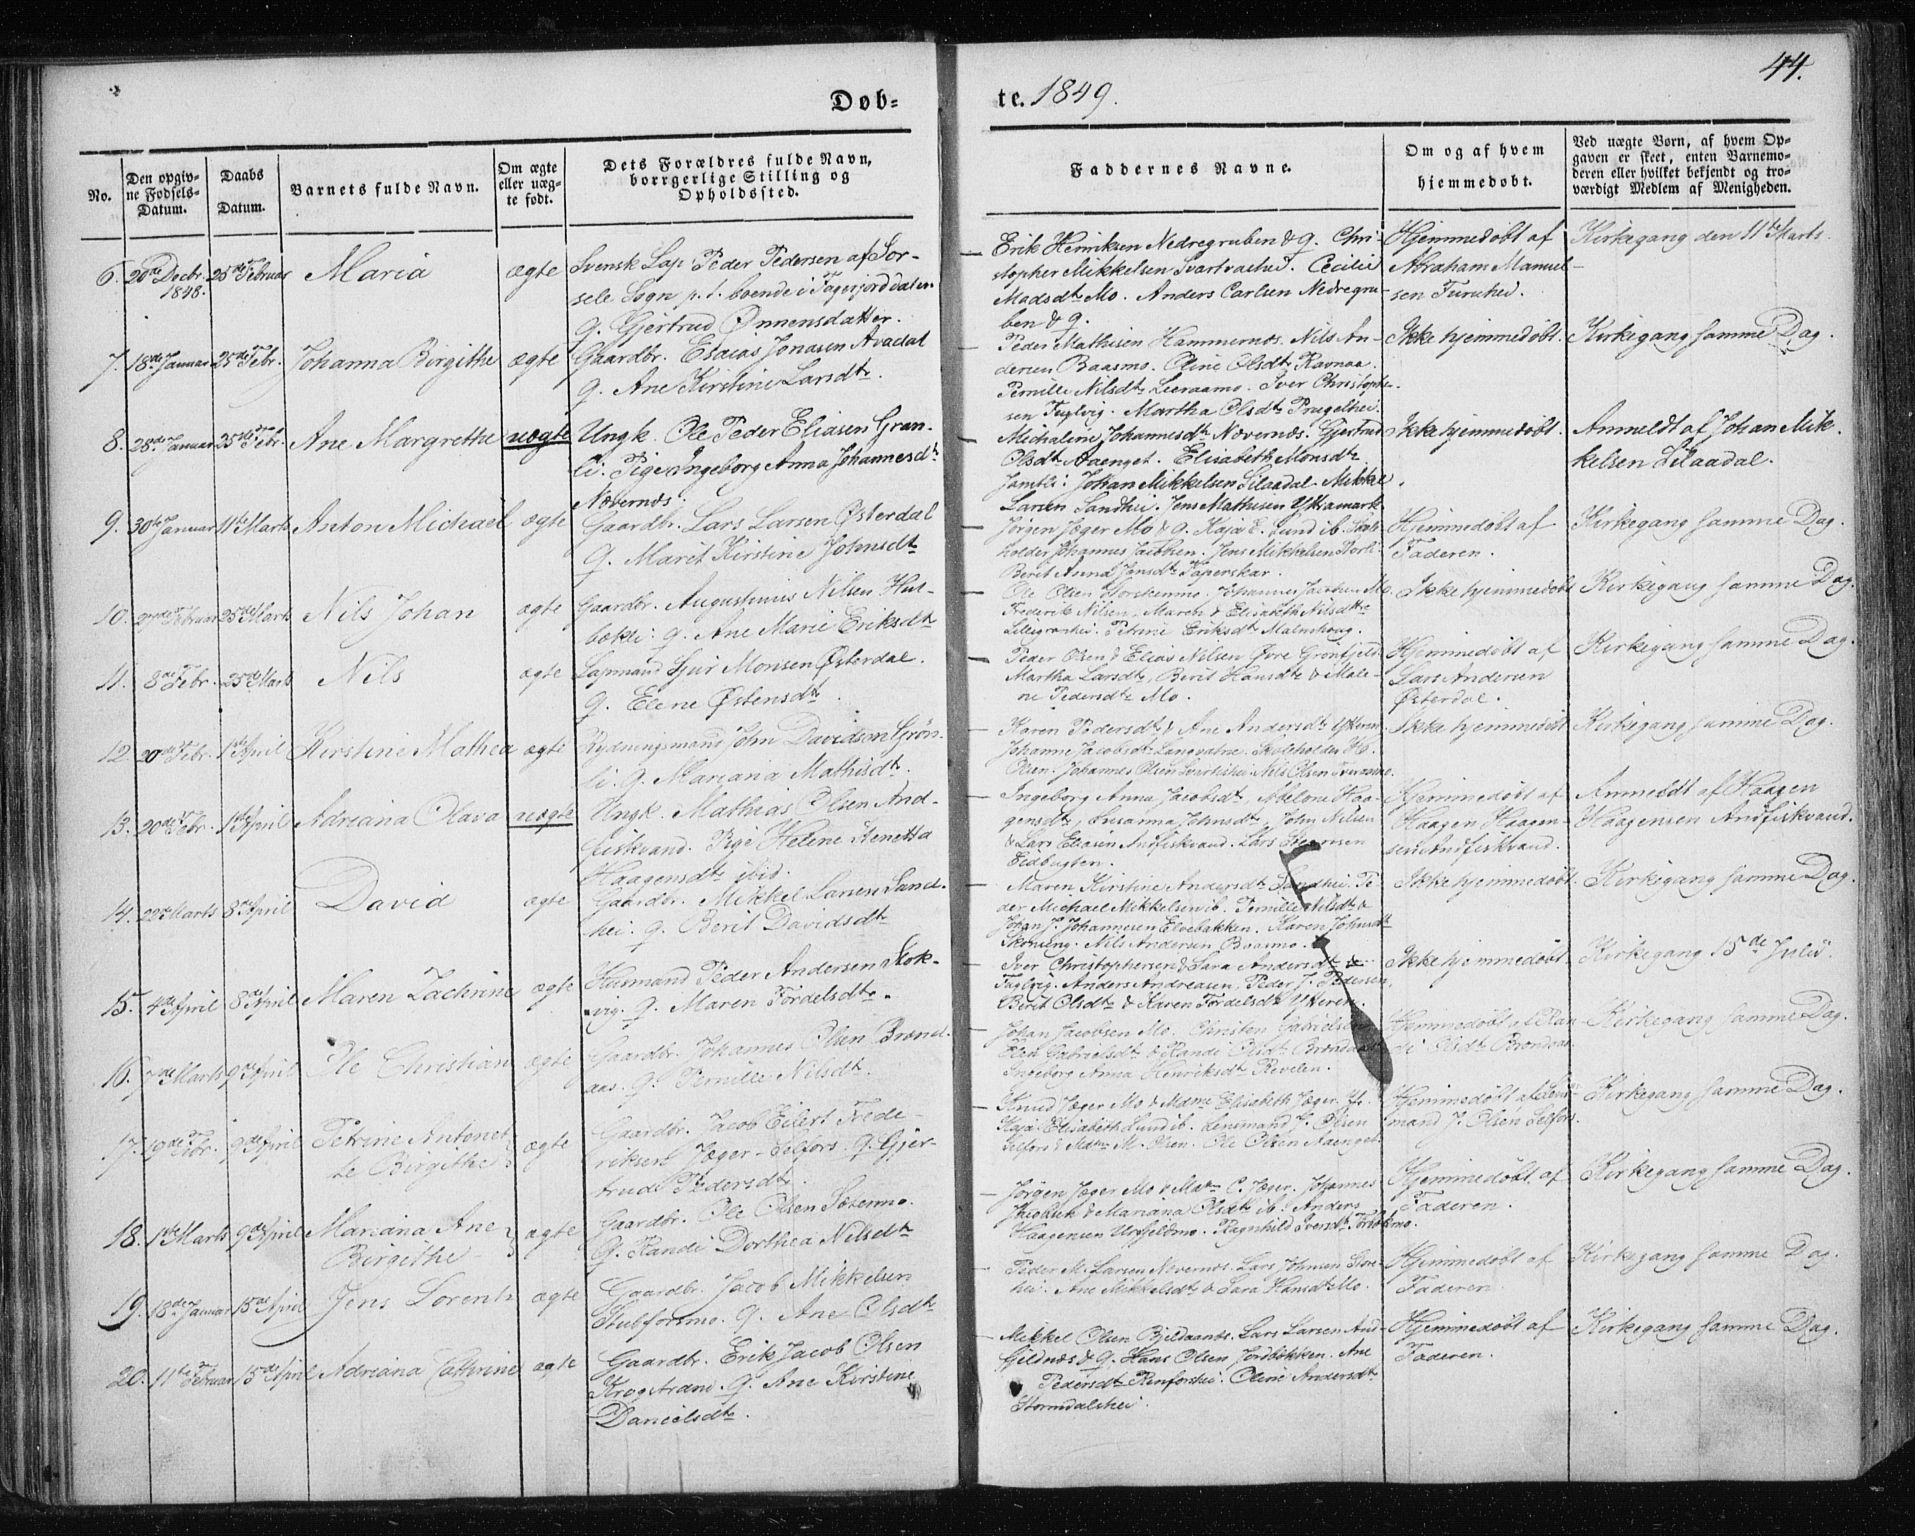 44.
Døb-
te. 1849.
No.
Den opgiv-
ne Fødsels-
Datum.
Daabs
Datum.
Barnets fulde Navn.
Om ægte
eller uæg-
te født.
Dets Forældres fulde Navn,
borrgerlige Stilling og
Opholdssted.
Faddernes Navne.
Om og af hvem
hjemmedøbt.
Ved uægte Børn, af hvem Op-
gaven er skeet, enten Barnemo-
deren eller hvilket bekjendt og tro-
værdigt Medlem af Menigheden.
6.
20de Decbr.
1848.
25de Februar
Maria
ægte
Svensk Lap Peder Pedersen af Sor-
sele Sogn p. t. boende i
Q. Gjertrud Ønnensdatter.
Erik Henriksen Nedregruben & Q. Chri-
stopher Mikkelsen Svartvatnet. Cecilie
Madsdtr Mo. Anders Carlsen Nedregru-
ben & Q.
Hjemmedøbt af
Abraham Manuel-
sen Furuhei.
Kirkegang den 11te Marts.
7.
18de Januar
25de Febr.
Johanna Birgithe
ægte
Gaardbr. Esaias Jonasen Avadal
Q. Ane Kirstine Larsdtr.
Peder Mathisen Hammernæs. Nils An-
dersen Baasmo. Oline Olsdtr Ravnaa.
Pernille Nilsdtr Leeraamo. Iver Christophe-
sen Fuglvig. Martha Olsdtr Prugelhei.
Ikke hjemmedøbt.
Kirkegang samme Dag.
8.
28de Januar
25de Febr.
Ane Margrethe
uægte
Ungk. Ole Peder Eliasen Gran-
li. Pige Ingeborg Anna Johannesdtr
Nævernæs.
Michaline Johannesdtr Nævernæs. Gjertrud
Olsdtr Aaenget. Elisabeth Monsdtr
Jamtli. Johan Mikkelsen Lilaadal. Mikkel
Larsen Sandhei. Jens Mathisen Ytteramark
Ikke hjemmedøbt.
Anmeldt af Johan Mik-
kelsen Lilaadal.
9.
30te Januar
11te Marts
Anton Michael
ægte
Gaardbr. Lars Larsen Østerdal
Q. Marit Kirstine Johnsdtr
Jørgen Jæger Mo & Q. Kaja E. Lund ib. Skole-
holder Johannes Jacobsen. Jens Mikkelsen Storli
Berit Anna Jonsdtr Tapperskar.
Hjemmedøbt af
Faderen.
Kirkegang samme Dag.
10.
Februar
25de Marts
Nils Johan
ægte
Gaardbr. Augustinus Nilsen Hul-
bækli. Q. Ane Marie Eriksdtr
Ole Olsen Horskenmo. Johannes Jacobsen Mo.
Frederik Nilsen, Maren & Elisabeth Nilsdtr
Lillegranhei. Petrine Eriksdtr Malmhoug.
Ikke hjemmedøbt
Kirkegang samme Dag.
11.
8de Febr.
25de Marts
Nils
ægte
Lapmand Sjur Monsen Østerdal.
Q. Elene Østensdtr
Peder Olsen & Elias Nilsen Øvre Grønfjeld
Martha Larsdtr, Berit Hansdtr & Male-
ne Pedersdtr Mo.
Hjemmedøbt af
Lars Andersen
Østerdal.
Kirkegang samme Dag.
12.
20de Febr.
1ste April
Kirstine Mathea
ægte
Rydningsmand John Davidsen Grøn-
li. Q. Mariana Mathisdtr.
Karen Pedersdtr & Ane Andersdtr Ytteren
Johanne Jacobsdtr Langvatne. Skoleholder
Olsen. Johannes Olsen Svartishei. Nils Olsen
Ikke hjemmedøbt
Kirkegang samme Dag.
13.
20de Febr.
1ste April
Adriana Olava
uægte
Ungk. Mathias Olsen And-
fiskvand. Pige Helene Kenetta
Haagensdtr ibid.
Ingeborg Anna Jacobsdtr, Abelone Haa-
gensdtr, Susanna Johnsdtr, John Nilsen
& Lars Eliasen Andfiskvand. Lars Steensen
Eidbugten.
Hjemmedøbt af
Haagen Haagen-
sen Andfiskvand.
Anmeldt af Haagen
Haagensen Andfiskvand.
14.
22de Marts
8de April
David
ægte
Gaardbr. Mikkel Larsen Sand-
hei. Q. Berit Davidsdtr
Maren Kirstine Andersdtr Sandhei. Pe-
der Michael Mikkelsen ib. Pernille Nilsdtr &
Johan J. Johannesen Elvebakken. Karen Johnsdtr
Skonseng. Nils Andersen Baasmo.
Ikke hjemmedøbt.
Kirkegang samme Dag.
15.
4de April
8de April
Maren Zachrine
ægte
Huusmand Peder Andersen Stok-
vig. Q. Maren Fordelsdtr.
Iver Christophersen & Sara Andersdtr
Fuglvig. Anders Andreasen, Peder J. Pedersen,
Berit Olsdtr & Karen Fordelsdtr Ytteren.
Ikke hjemmedøbt.
Kirkegang 15de Julii.
16.
7de Marts
9de April
Ole Christian
ægte
Gaardbr. Johannes Olsen Brend-
aas. Q. Pernille Nilsdtr.
Johan Jacobsen Mo. Christen Gabrielsen
Elen Gabrielsdtr & Randi Olsdtr Brendaas.
Ingeborg Anna Henriksdtr Revelen.
Hjemmedøbt af Ran-
di Olsdtr Brendaas.
Kirkegang samme Dag.
17.
19de Febr.
9de April
Petrine Antonet-
te Birgithe
ægte
Gaardbr. Jacob Eilert Frede-
riksen Jæger Selfors. Q. Gjer-
trud Pedersdtr.
Knud Jæger Mo & Mdme Elisabeth Jæger. Q.
Kaja Elisabeth Lund ib. Lensmand J. Olsen
Selfors & Mdm M. Olsen. Ole Olsen Aaenget.
Hjemmedøbt af Lens-
mand J. Olsen Selfors.
Kirkegang samme Dag.
18.
1ste Marts
9de April
Mariana Ane
Birgithe
ægte
Gaardbr. Ole Olsen Sætermo.
Q. Randi Dorthea Nilsdtr
Jørgen Jæger Mo & Mdm C. Jæger. Johannes
Jacobsen & Mariana Olsdtr ib. Anders
Haagensen Urfjeldmo. Ragnhild Iversdtr
Hjemmedøbt af
Faderen.
Kirkegang samme Dag.
19.
18de Januar
15de April
Jens Lorents
ægte
Gaardbr. Jacob Mikkelsen
Stubforsmo. Q. Ane Olsdtr
Peder M. Larsen Nævernæs. Lars Johnsen Stor-
hei. Ane Mikkelsdtr & Sara Hansdtr Mo.
Hjemmedøbt af
Faderen.
Kirkegang samme Dag.
20.
11te Februar
15de April
Adriana Cathrine
ægte
Gaardbr. Erik Jacob Olsen
Krogstrand. Q. Ane Kirstine
Danielsdtr.
Mikkel Olsen Bjeldaanæs. Lars Larsen And-
fjeldnæs & Q. Hans Olsen Jordbækken. Ane
Pedersdtr Renforshei. Oline Andersdtr
Stormdalshei.
Hjemmedøbt af
Faderen.
Kirkegang samme Dag.